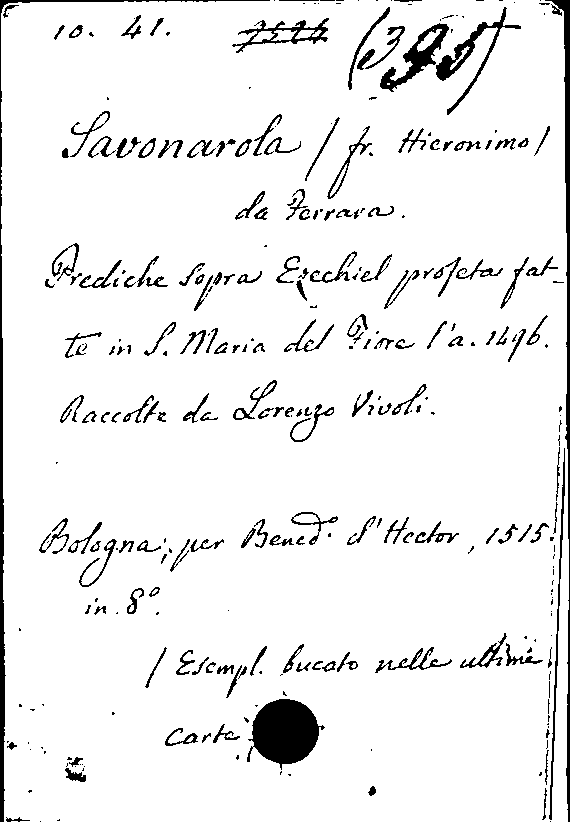 10. 41. (395)
Savonarola / fr. Hieronimo /
da Ferrara.
Prediche sopra Ezechiel profeta fat-
te in S. Maria del Fiore l'a. 1496.
Raccolte da Lorenzo Vivoli.
Bologna, per Bened.º d'Hector, 1515.
in 8º.
/ Esempl. bucato nelle ultime
carte /